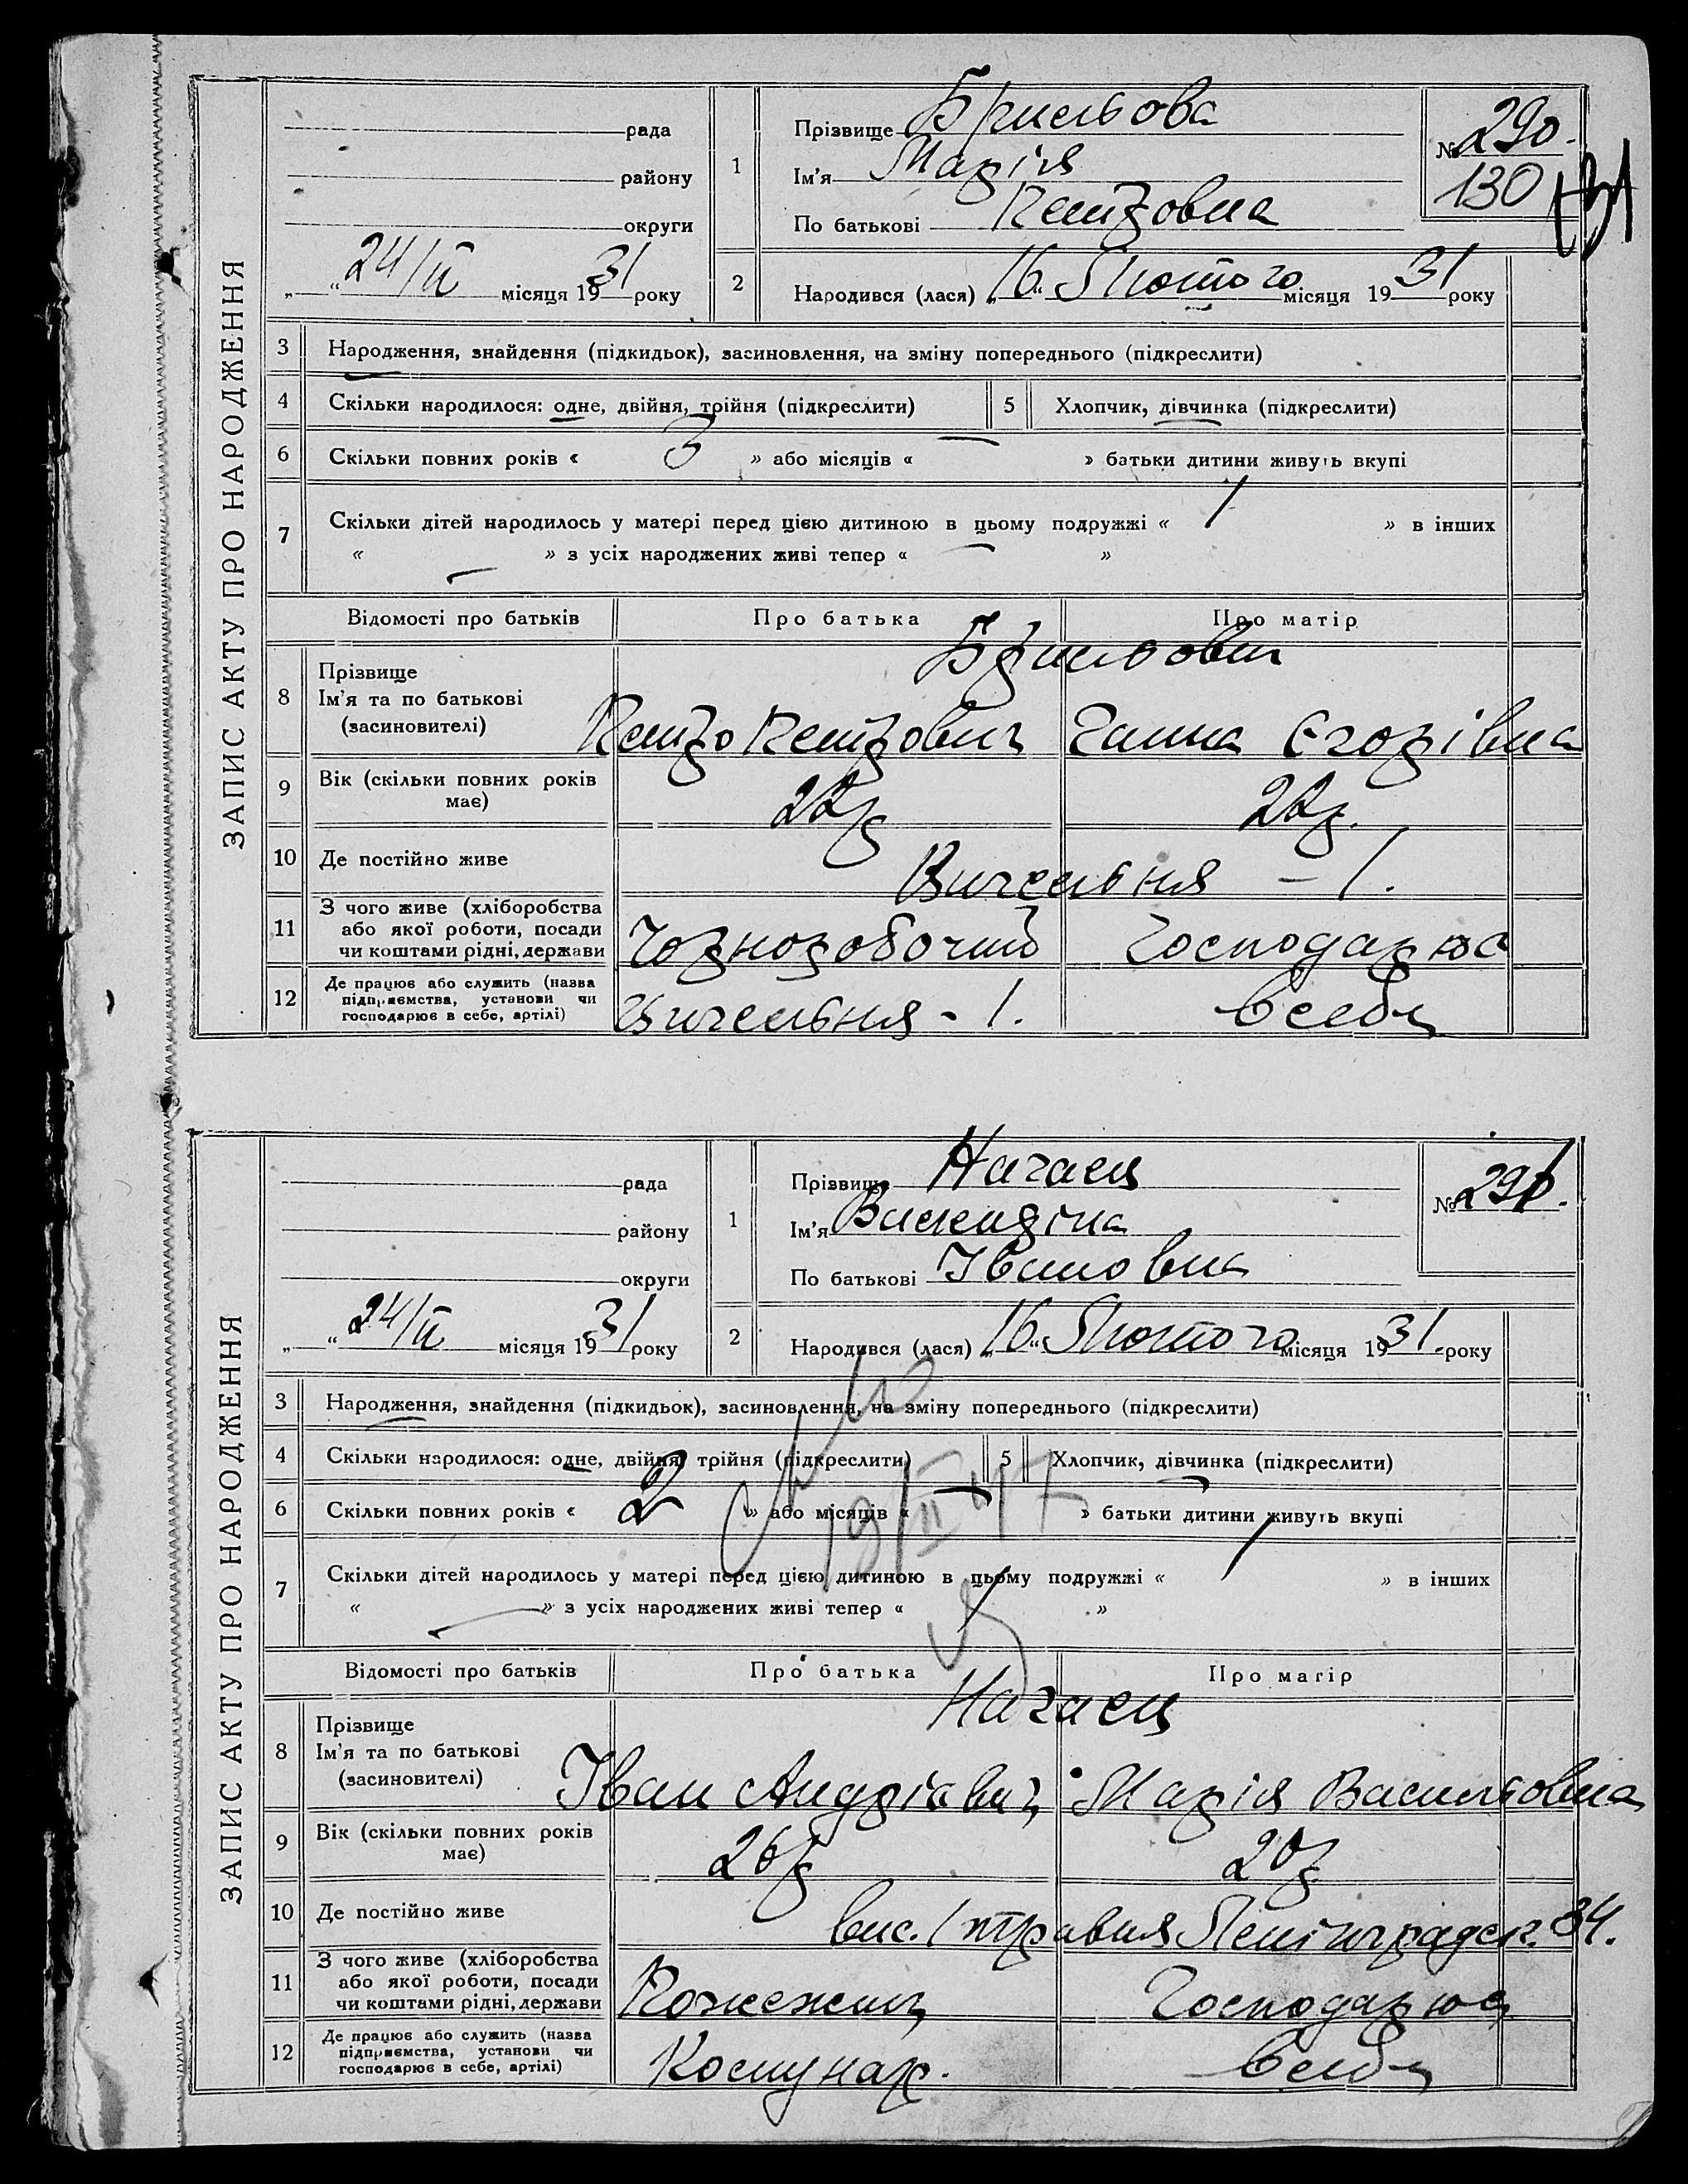 ЗАПИС АКТУ ПРО НАРОДЖЕННЯ
рада
району
округи
„ “ 24/II місяця 1931 року
1
Прізвище
Ім'я Марія
По батькові Петровна
№ 290.
130
2
Народився (лася) „16“ Лютого місяця 1931 року
3 Народження, знайдення (підкидьок), засиновлення, на зміну попереднього (підкреслити)
4 Скільки народилося: одне, двійня, трійня (підкреслити)
5 Хлопчик, дівчинка (підкреслити)
6 Скільки повних років « 3 » або місяців « — » батьки дитини живуть вкупі
7 Скільки дітей народилось у матері перед цією дитиною в цьому подружжі « 1 » в інших
« — » з усіх народжених живі тепер « — »
Відомості про батьків Про батька Про матір
8 Прізвище
Ім'я та по батькові
(засиновителі)
Петро Петрович Ганна Єгорівна
9 Вік (скільки повних років
має)
22р 22р.
10 Де постійно живе
– 1.
11 З чого живе (хліборобства
або якої роботи, посади
чи коштами рідні, держави
Чорноробочий Господарює
12 Де працює або служить (назва
підприємства, установи чи
господарює в себе, артілі)
- 1. в себе
ЗАПИС АКТУ ПРО НАРОДЖЕННЯ
рада
району
округи
„ “ 24/II місяця 1931 року
1
Прізвище Нагаец
Ім'я
По батькові Івановна
№ 291.
2
Народився (лася) „16“ Лютого місяця 1931. року
3 Народження, знайдення (підкидьок), засиновлення, на зміну попереднього (підкреслити)
4 Скільки народилося: одне, двійня, трійня (підкреслити)
5 Хлопчик, дівчинка (підкреслити)
6 Скільки повних років « 2 » або місяців « — » батьки дитини живуть вкупі
19/II 47
7 Скільки дітей народилось у матері перед цією дитиною в цьому подружжі « 1 » в інших
« — » з усіх народжених живі тепер « 1 »
Відомості про батьків Про батька Про матір
8 Прізвище
Ім'я та по батькові
(засиновителі)
Нагаец
Іван Андрієвич Марія Васильовна
9 Вік (скільки повних років
має)
26р 20р
10 Де постійно живе
вис. 1 травня Ленінградск. 34.
11 З чого живе (хліборобства
або якої роботи, посади
чи коштами рідні, держави
Господарює
12 Де працює або служить (назва
підприємства, установи чи
господарює в себе, артілі)
Комунар. в себе